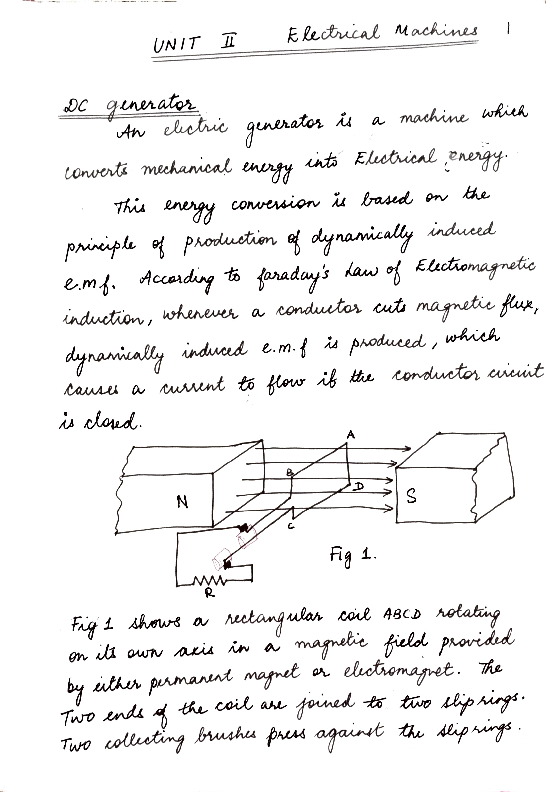 UNIT II Electrical Machines 1
DC generator
An electric generator is a machine which
converts mechanical energy into Electrical energy.
This energy conversion is based on the
principle of production of dynamically induced
e.m.f. According to faraday's Law of Electromagnetic
induction, whenever a conductor cuts magnetic flux,
dynamically induced e.m.f is produced, which
causes a current to flow if the conductor circuit
is closed.
A
B
N
D
S
C
Fig 1.
R
Fig 1 shows a rectangular coil ABCD rotating
on its own axis in a magnetic field provided
by either permanent magnet or electromagnet. The
Two ends of the coil are joined to two slip rings.
Two collecting brushes press against the slip rings.